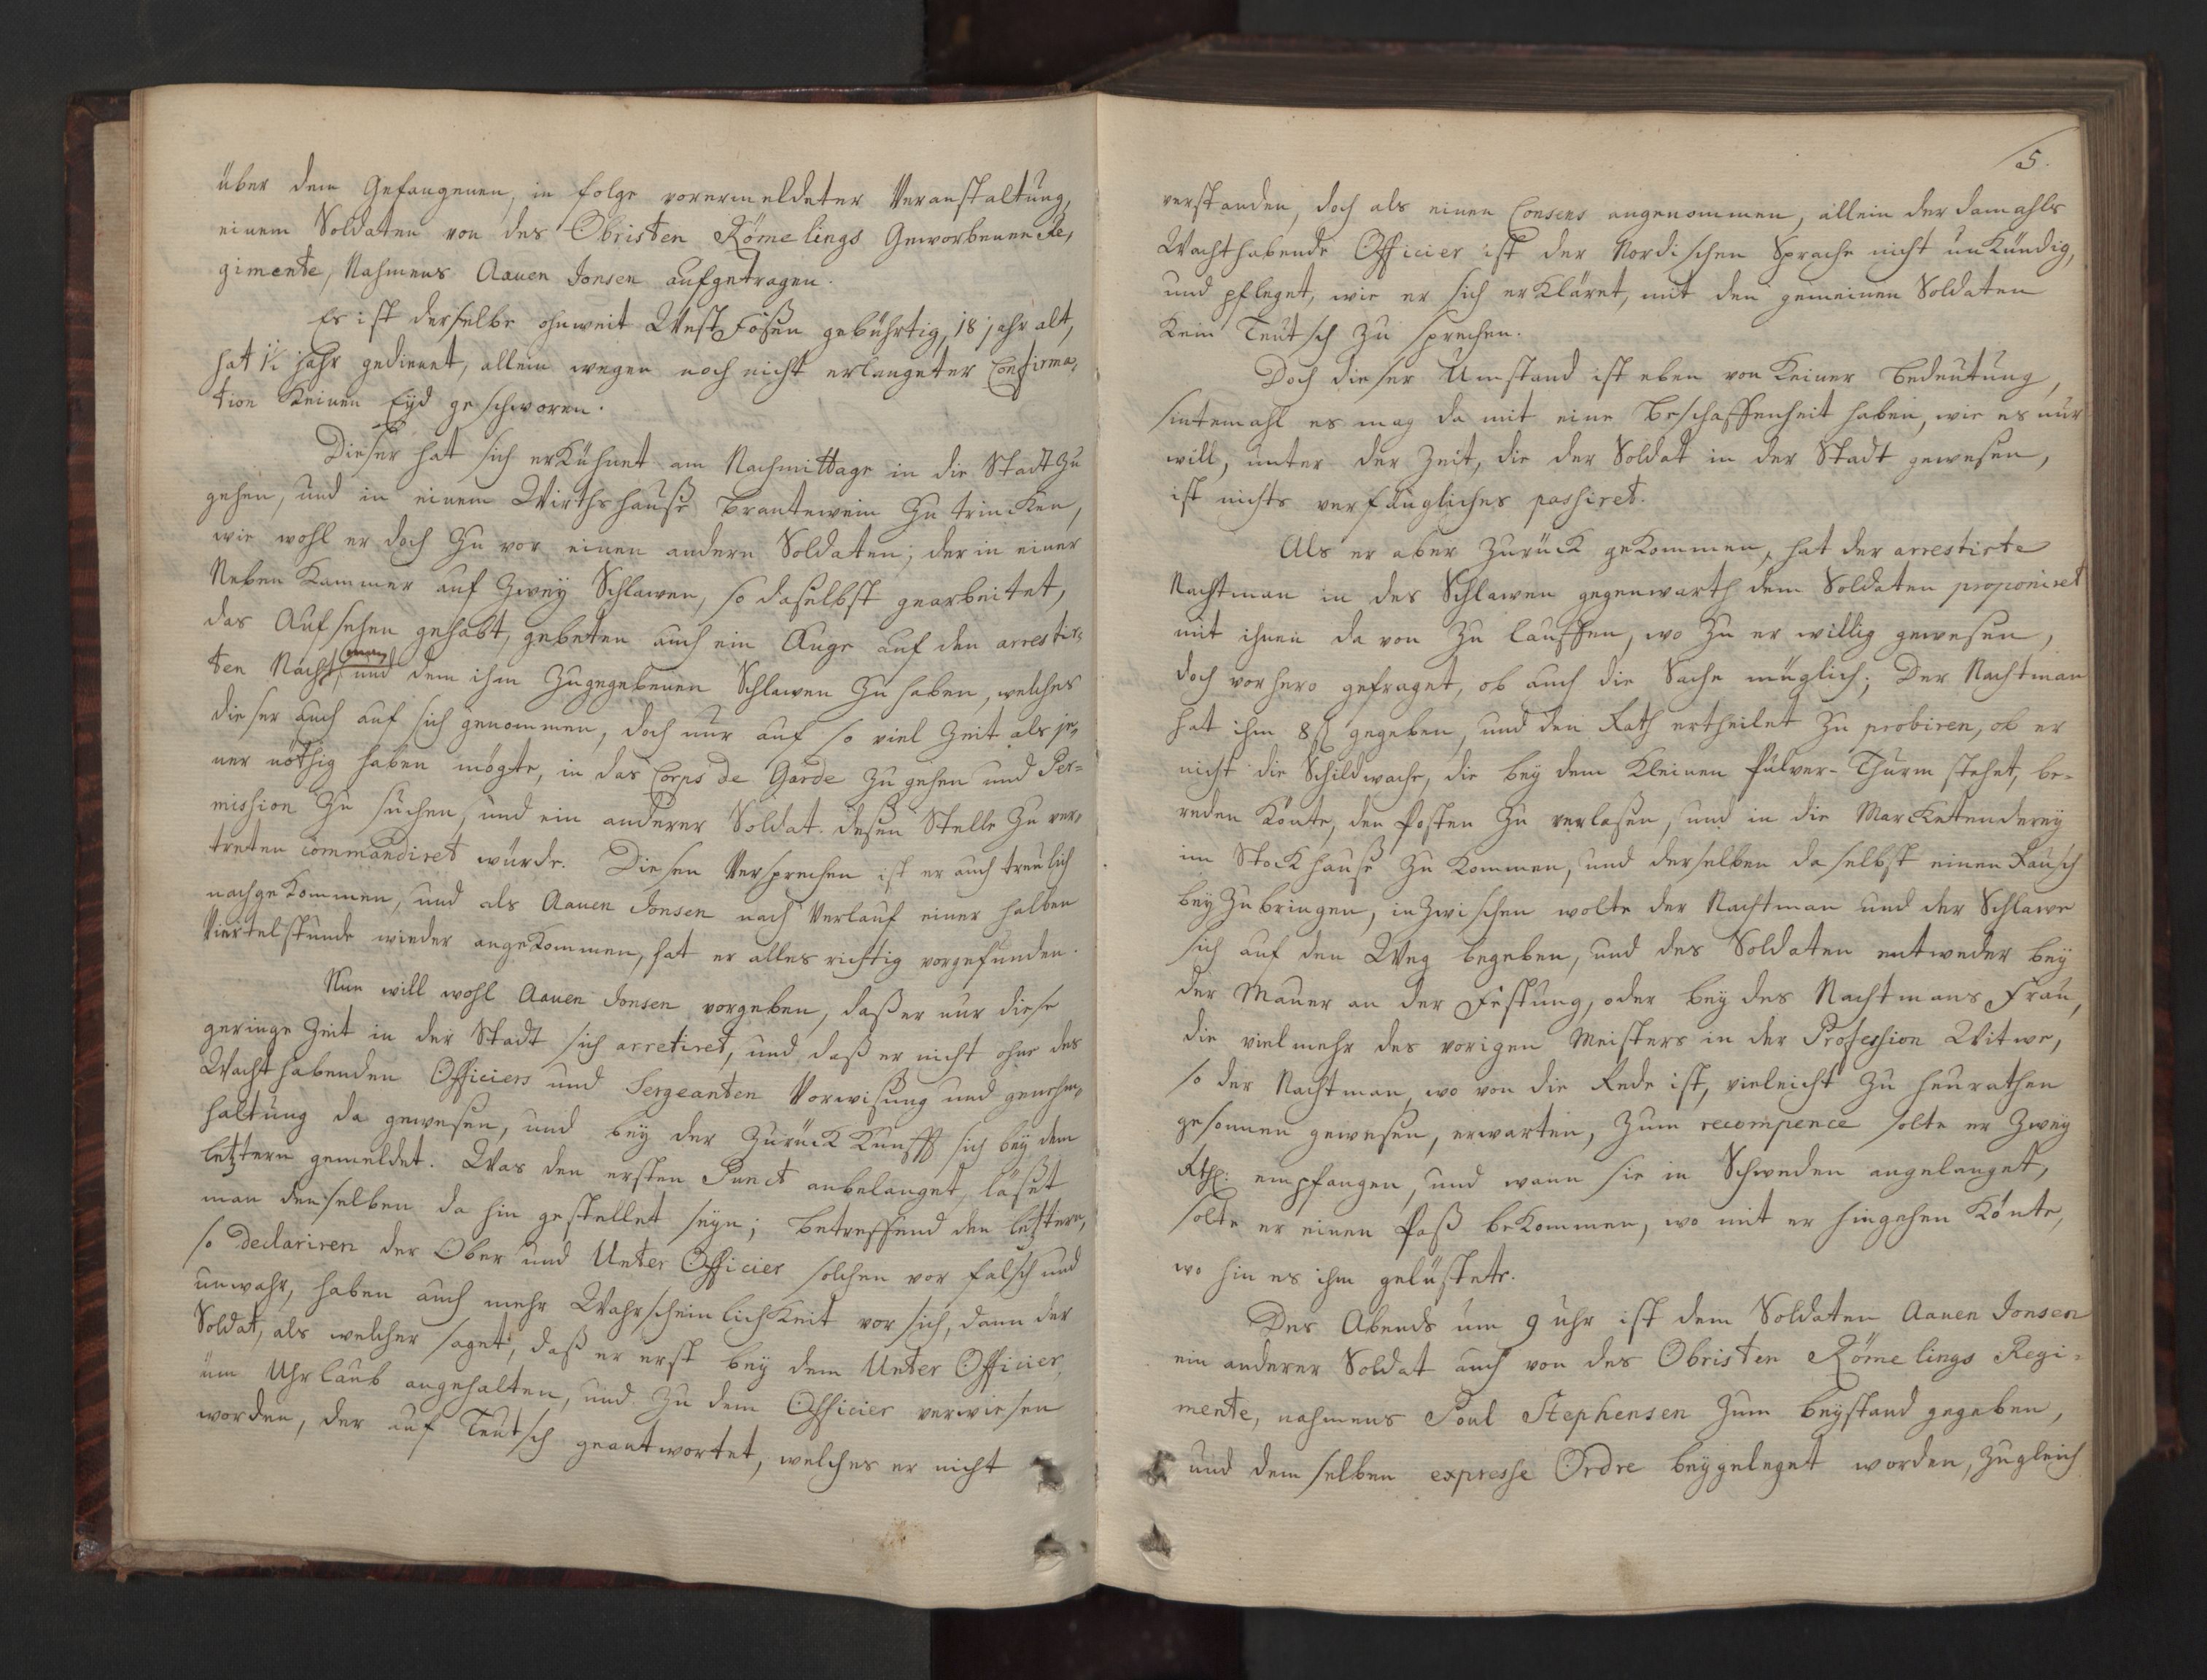 über dem Gefangenen, in folge vorermeldeter Veranstaltung,
einem Soldaten von des Obristen Römelings Geworbenen Re,
gimente, Nahmens Aauen Jonsen aufgetragen.
Es ist derselbe ohnweit West Foßen gebührtig, 18 jahr alt,
hat 1½ jahr gedienet, allein wegen noch nicht erlangeter Confirma,
tion keinen Eyd geschworen.
Dieser hat sich erkühnet am Nachmittage in die Stadt zu
gehen, und in einem Wirthshauße Brantewein zu trincken,
wie wohl er doch zu vor einen andern Soldaten; der in einer
Neben Kammer auf zwey Schlawen, so daselbst gearbeitet,
das Aufsehen gehabt, gebeten auch ein Auge auf den arrestir,
ten Nacht,man und dem ihm zugegebenen Schlawen zu haben, welches
dieser auch auf sich genommen, doch nur auf so viel Zeit als je,
ner nöthig haben mögte, in das Corps de Garde zu gehen und Per-
mission zu suchen, und ein anderer Soldat deßen Stelle zu ver,
treten commandiret würde. Diesen Versprechen ist er auch treulich
nachgekommen, und als Aauen Jonsen nach Verlauf einer halben
Viertelstunde wieder angekommen, hat er alles richtig vorgefunden.
Nun will wohl Aauen Jonsen vorgeben, daß er nur diese
geringe Zeit in der Stadt sich arretiret, und daß er nicht ohne des
Wachthabenden Officiers und Sergeanten Vorwißung und genehm,
haltung da gewesen, und bey der Zurück Kunfft sich bey dem
letztern gemeldet. Was den ersten Punct anbelanget, läßet
man denselben da hin gestellet seyn; betreffend den letztern,
so declariren der Ober und Unter Officier solchen vor falsch und
unwahr, haben auch mehr Wahrscheinlichkeit vor sich, dann der
Soldat, als welcher saget, daß er erst bey dem Unter Officier
üm Uhrlaub angehalten, und zu dem Officier verwiesen
worden, der auf Teutsch geantwortet, welches er nicht
5.
verstanden, doch als einen Consens angenommen, allein der damahls
Wachthabende Officier ist der Nordischen Sprache nicht unkündig,
und pfleget, wie er sich erkläret, mit den gemeinen Soldaten
kein Teutsch zu sprechen.
Doch dieser Umstand ist eben von keiner Bedeutung,
sintemahl es mag da mit eine Beschaffenheit haben, wie es nur
will, unter der Zeit, die der Soldat in der Stadt gewesen,
ist nichts verfängliches passiret.
Als er aber zurück gekommen, hat der arrestirte
Nachtman in des Schlawen gegenwarth dem Soldaten proponiret
mit ihnen da von zu lauffen, wo zu er willig gewesen,
doch vorhero gefraget, ob auch die Sache müglich; Der Nachtman
hat ihm 8 ß gegeben, und den Rath ertheilet zu probiren, ob er
nicht die Schildwache, die bey dem Kleinen Pulver-Thurm stehet, be-
reden könte, den Posten zu verlaßen, und in die Marcketenderey
im Stockhause zu kommen, und derselben daselbst einen Rausch
beyzubringen, inzwischen wolte der Nachtman und der Schlawe
sich auf den Weg begeben, und des Soldaten entweder bey
der Mauer an der Festung, oder bey des Nachtmans Frau,
die vielmehr des vorigen Meisters in der Profession Witwe,
so der Nachtman, wo von die Rede ist, vieleicht zu heurathen
gesonnen gewesen, erwarten, zum recompence solte er zwey
Rthl: empfangen, und wann sie in Schweden angelanget,
solte er einen Paß bekommen, wo mit er hingehen könte,
wo hin es ihm gelüstete.
Des Abends um 9 uhr ist dem Soldaten Aauen Jonsen
ein anderer Soldat auch von des Obristen Römelings Regi-
mente, nahmens Poul Stephensen zum beystand gegeben,
und demselben expresse Ordre beygeleget worden, zugleich